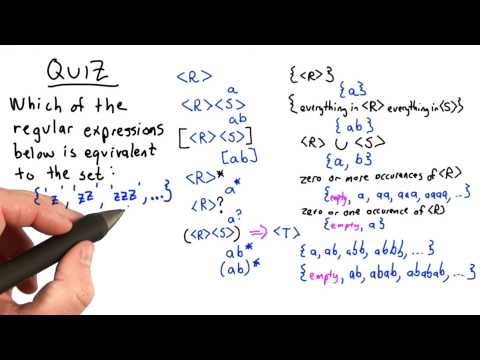 QUIZ
Which of the
regular expressions
below is equivalent
to the set:
{'z', 'zz', 'zzz', ...}
<R>
a
<R><S>
ab
[<R><S>]
[ab]
<R>*
a*
<R>?
a?
(<R><S>) => <T>
ab*
(ab)*
{<R>}
{a}
{everything in <R> everything in <S>}
{ab}
<R> ∪ <S>
{a, b}
zero or more occurences of <R>
{empty, a, aa, aaa, aaaa, ..}
zero or one occurence of <R>
{empty, a}
{a, ab, abb, abbb, ...}
{empty, ab, abab, ababab, ...}